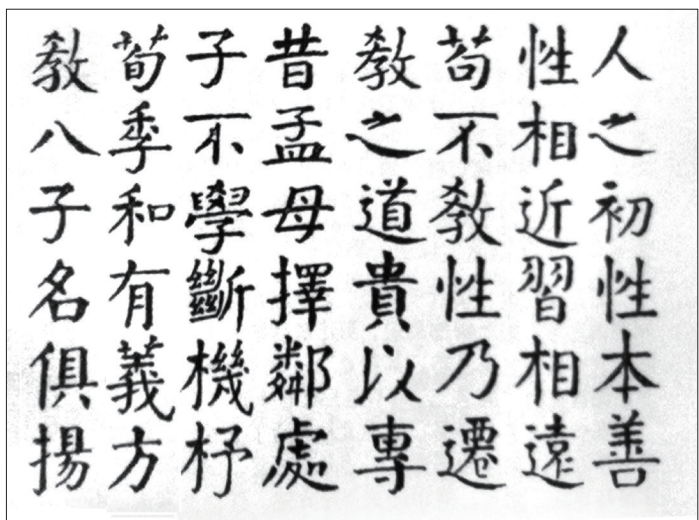 人之初性本善
性相近習相遠
苟不教性乃遷
教之道貴以專
昔孟母擇鄰處
子不學斷機杼
荀季和有義方
教八子名俱揚